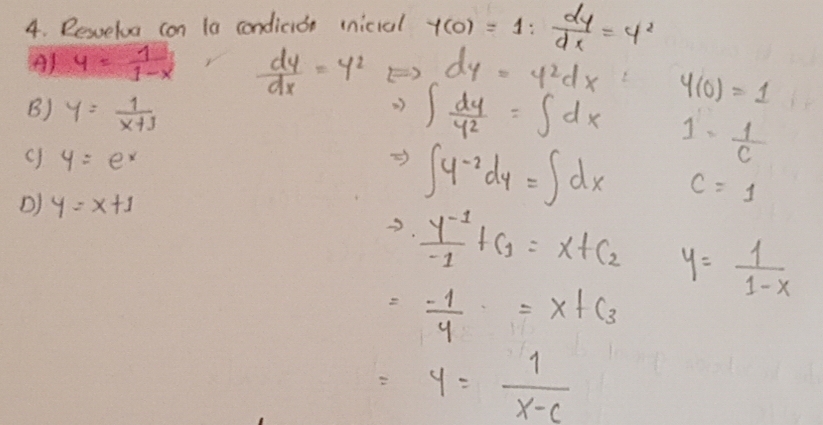 4. Resuelva con la condición inicial y(0) = 1: dy/dx = y²
A) y = 1/1-x
B) y = 1/x+1
C) y = eˣ
D) y = x+1
dy/dx = y² <=> dy = y²dx
=> ∫ dy/y² = ∫ dx
=> ∫y⁻²dy = ∫ dx
=> y⁻¹/-1 + C₁ = x + C₂
= -1/y = x + C₃
= y = 1/x-c
y(0) = 1
1 = 1/c
C = 1
y = 1/1-x